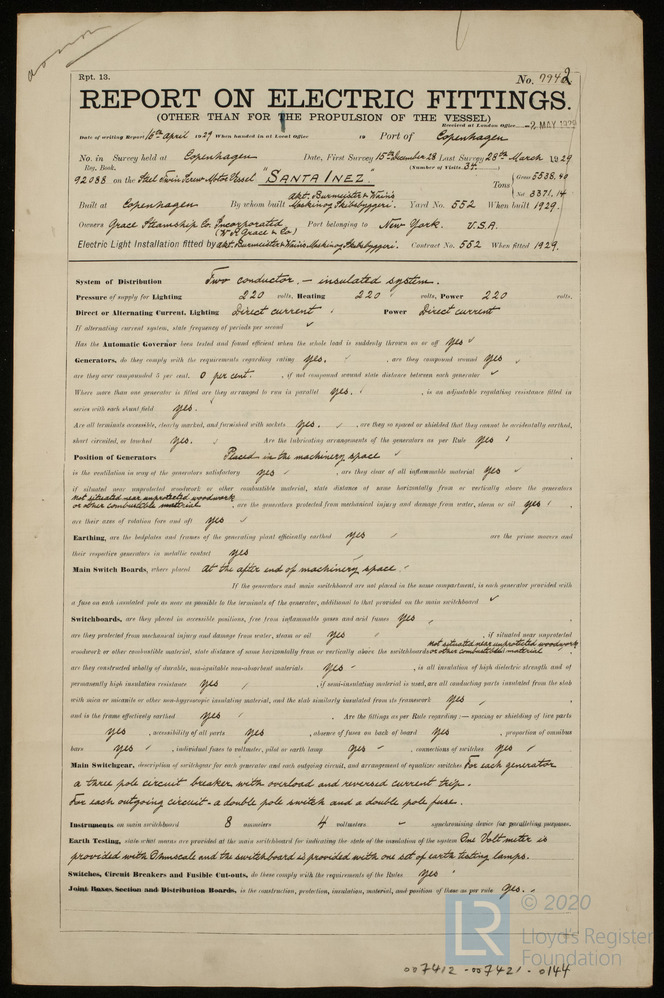 Rpt. 13.
No. 7942
REPORT ON ELECTRIC FITTINGS.
(OTHER THAN FOR THE PROPULSION OF THE VESSEL)
Received at London Office -2 MAY 1929
Date of writing Report 16th April 1929 When handed in at Local Office 19 Port of Copenhagen
No. in Survey held at Copenhagen Date, First Survey 15th December 28 Last Survey 28th March 1929
Reg. Book. (Number of Visits 34)
92088 on the Steel Twin Screw Motor Vessel "SANTA INEZ" Tons { Gross 5538.40
Net 3371.14
Built at Copenhagen By whom built Akt. Burmeister & Wain's Maskin og Skibsbyggeri. Yard No. 552 When built 1929.
Owners Grace Steamship Co. Incorporated (W. R. Grace & Co) Port belonging to New York. U.S.A.
Electric Light Installation fitted by Akt. Burmeister & Wain's Maskin og Skibsbyggeri. Contract No. 552 When fitted 1929.
System of Distribution Two conductor – insulated system.
Pressure of supply for Lighting 220 volts, Heating 220 volts, Power 220 volts.
Direct or Alternating Current, Lighting Direct current Power Direct current
If alternating current system, state frequency of periods per second ✓
Has the Automatic Governor been tested and found efficient when the whole load is suddenly thrown on or off yes ✓
Generators, do they comply with the requirements regarding rating yes. , are they compound wound yes ✓
are they over compounded 5 per cent. 0 per cent. , if not compound wound state distance between each generator ✓
Where more than one generator is fitted are they arranged to run in parallel yes. , is an adjustable regulating resistance fitted in
series with each shunt field yes.
Are all terminals accessible, clearly marked, and furnished with sockets yes. , are they so spaced or shielded that they cannot be accidentally earthed,
short circuited, or touched yes. Are the lubricating arrangements of the generators as per Rule yes
Position of Generators Placed in the machinery space ✓
is the ventilation in way of the generators satisfactory yes ✓ , are they clear of all inflammable material yes ✓
if situated near unprotected woodwork or other combustible material, state distance of same horizontally from or vertically above the generators
not situated near unprotected woodwork
or other combustible material , are the generators protected from mechanical injury and damage from water, steam or oil yes
are their axes of rotation fore and aft yes ✓
Earthing, are the bedplates and frames of the generating plant efficiently earthed yes are the prime movers and
their respective generators in metallic contact yes
Main Switch Boards, where placed At the after end of machinery space
If the generators and main switchboard are not placed in the same compartment, is each generator provided with
a fuse on each insulated pole as near as possible to the terminals of the generator, additional to that provided on the main switchboard ✓
Switchboards, are they placed in accessible positions, free from inflammable gases and acid fumes yes
are they protected from mechanical injury and damage from water, steam or oil yes , if situated near unprotected
woodwork or other combustible material, state distance of same horizontally from or vertically above the switchboards not situated near unprotected woodwork or other combustible material
are they constructed wholly of durable, non-ignitable non-absorbent materials yes , is all insulation of high dielectric strength and of
permanently high insulation resistance yes , if semi-insulating material is used, are all conducting parts insulated from the slab
with mica or micanite or other non-hygroscopic insulating material, and the slab similarly insulated from its framework yes
and is the frame effectively earthed yes . Are the fittings as per Rule regarding:— spacing or shielding of live parts
yes , accessibility of all parts yes , absence of fuses on back of board yes , proportion of omnibus
bars yes ✓ , individual fuses to voltmeter, pilot or earth lamp yes , connections of switches yes
Main Switchgear, description of switchgear for each generator and each outgoing circuit, and arrangement of equalizer switches For each generator
a three pole circuit breaker with overload and reversed current trip.
For each outgoing circuit - a double pole switch and a double pole fuse.
Instruments on main switchboard 8 ammeters 4 voltmeters synchronising device for paralleling purposes.
Earth Testing, state what means are provided at the main switchboard for indicating the state of the insulation of the system One Volt meter is
provided with Ohmscale and the switchboard is provided with one set of earth testing lamps.
Switches, Circuit Breakers and Fusible Cut-outs, do these comply with the requirements of the Rules yes
Joint Boxes Section and Distribution Boards, is the construction, protection, insulation, material, and position of these as per rule yes.
© 2020
LR Lloyd's Register
Foundation
007412-007421-0144